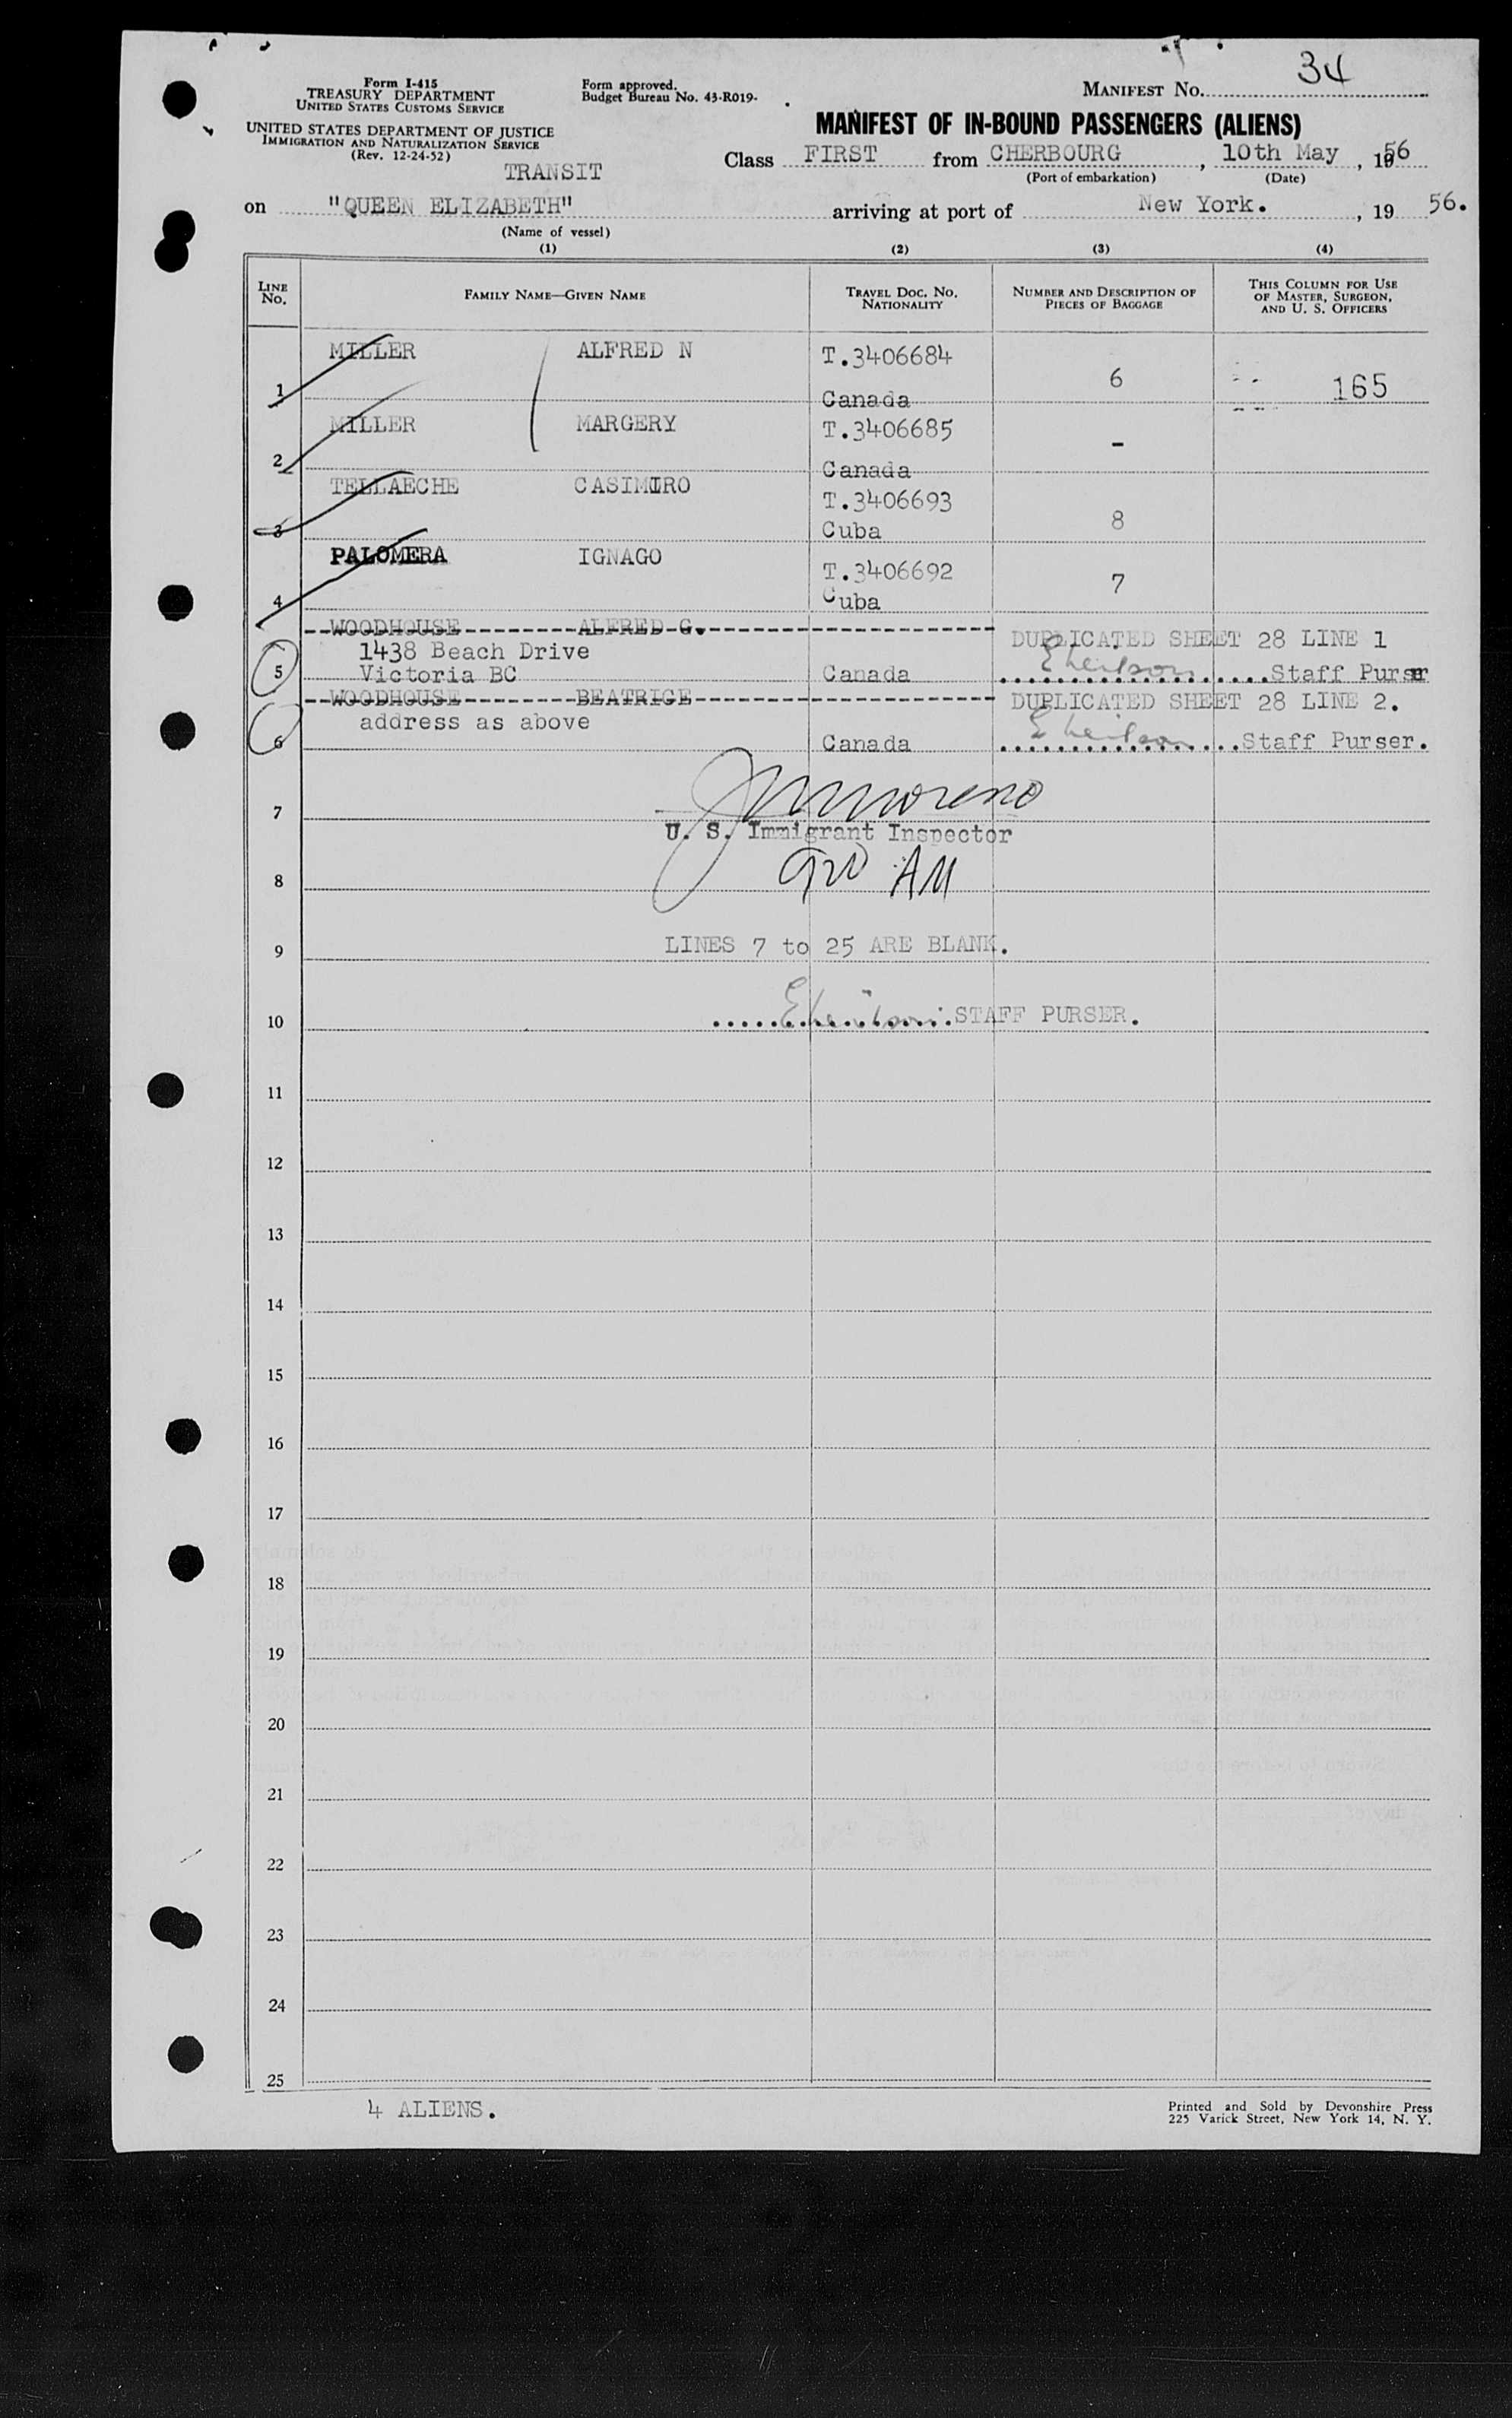 34
Form I-415
TREASURY DEPARTMENT
UNITED STATES CUSTOMS SERVICE
UNITED STATES DEPARTMENT OF JUSTICE
IMMIGRATION AND NATURALIZATION SERVICE
(Rev. 12-24-52)
Form approved.
Budget Bureau No. 43-R019-
MANIFEST No.
MANIFEST OF IN-BOUND PASSENGERS (ALIENS)
TRANSIT
Class FIRST from CHERBOURG, 10th May, 1956
(Port of embarkation) (Date)
on "QUEEN ELIZABETH" arriving at port of New York. , 19 56.
(Name of vessel)
(1) (2) (3) (4)
LINE No. FAMILY NAME—GIVEN NAME TRAVEL DOC. NO. NATIONALITY NUMBER AND DESCRIPTION OF PIECES OF BAGGAGE THIS COLUMN FOR USE OF MASTER, SURGEON, AND U. S. OFFICERS
1 MILLER ALFRED N T.3406684 Canada 6 165
2 MILLER MARGERY T.3406685 Canada -
3 TELLAECHE CASIMIRO T.3406693 Cuba 8
4 PALOMERA IGNAGO T.3406692 Cuba 7
WOODHOUSE ALFRED G. DUPLICATED SHEET 28 LINE 1
1438 Beach Drive
5 Victoria BC Canada Staff Purser
WOODHOUSE BEATRICE DUPLICATED SHEET 28 LINE 2.
address as above
6 Canada Staff Purser.
7
U. S. Immigrant Inspector
8 AM
9 LINES 7 to 25 ARE BLANK.
10 STAFF PURSER.
11
12
13
14
15
16
17
18
19
20
21
22
23
24
25
4 ALIENS.
Printed and Sold by Devonshire Press
225 Varick Street, New York 14, N. Y.